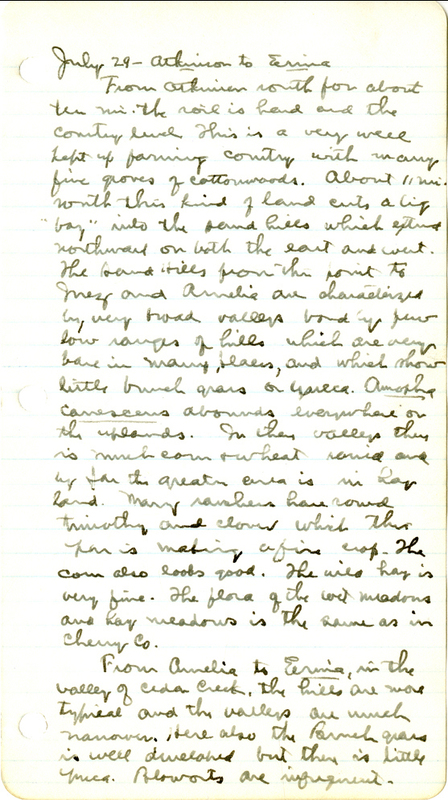 July 29 - Atkinson to Ericina
From Atkinson south for about
ten mi. the soil is hard and the
country level. This is a very well
kept up farming country with many
fine groves of cottonwoods. About 11 mi.
north this kind of land cuts a big
"bay" into the sand hills which extend
northward on both the east and west.
The Sand Hills from this point to
Inez and Amelia are characterized
by very broad valleys bond by few
low ranges of hills which are very
bare in many places, and which show
little bunch grass or yucca. Amorpha
canescens abounds everywhere on
the uplands. In these valleys there
is much corn & wheat raised and
by far the greater area is in hay
land. Many ranchers have sowed
timothy and clover which this
year is making a fine crop. The
corn also looks good. The wild hay is
very fine. The flora of the wet meadows
and hay meadows is the same as in
Cherry Co.
From Amelia to Ericina, in the
valley of Cedar Creek, the hills are more
typical and the valleys are much
narrower. Here also the Bunch grass
is well developed but there is little
Yucca. Blowouts are infrequent.